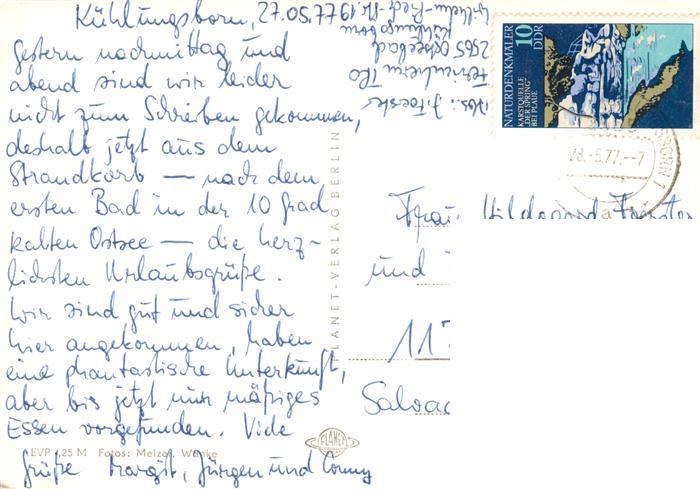 Kühlungsborn, 27.05.1977
gestern nachmittag und
abend sind wir leider
nicht zum Schreiben gekommen,
deshalb jetzt aus dem
Strandkorb — nach dem
ersten Bad in der 10 Grad
kalten Ostsee — die herz-
lichsten Urlaubsgrüße.
Wir sind gut und sicher
hier angekommen, haben
eine phantastische Unterkunft,
aber bis jetzt nur mäßiges
Essen vorgefunden. Viele
Grüße Margit, Jürgen und Conny
Abs.: J. Foerster
Ferienheim
2565 Ostseebad
Kühlungsborn
Wilhelm-Pieck-Str. 50
NATURDENKMÄLER
KARSTQUELLE
„DER SPRING"
BEI PLAUE
10
DDR
BORN 1
28.-5.77.--7
a
Frau Hildegard Foerster
und
11
Salvad
PLANET-VERLAG BERLIN
PLANET
EVP ,25 M Fotos: Melzer, Wanke